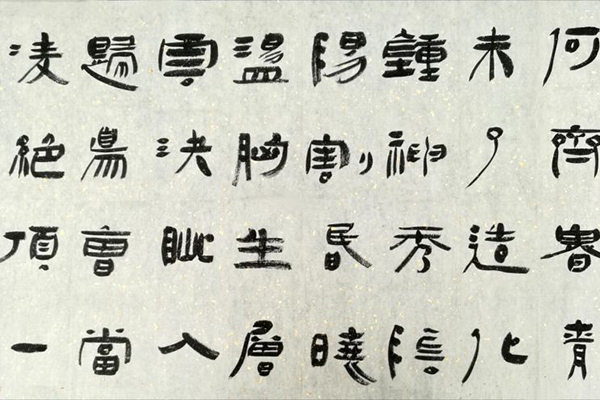 何齊魯青
未了造化
鍾神秀陰
陽割昬曉
盪胸生層
雲決眦入
歸鳥會當
凌絕頂一